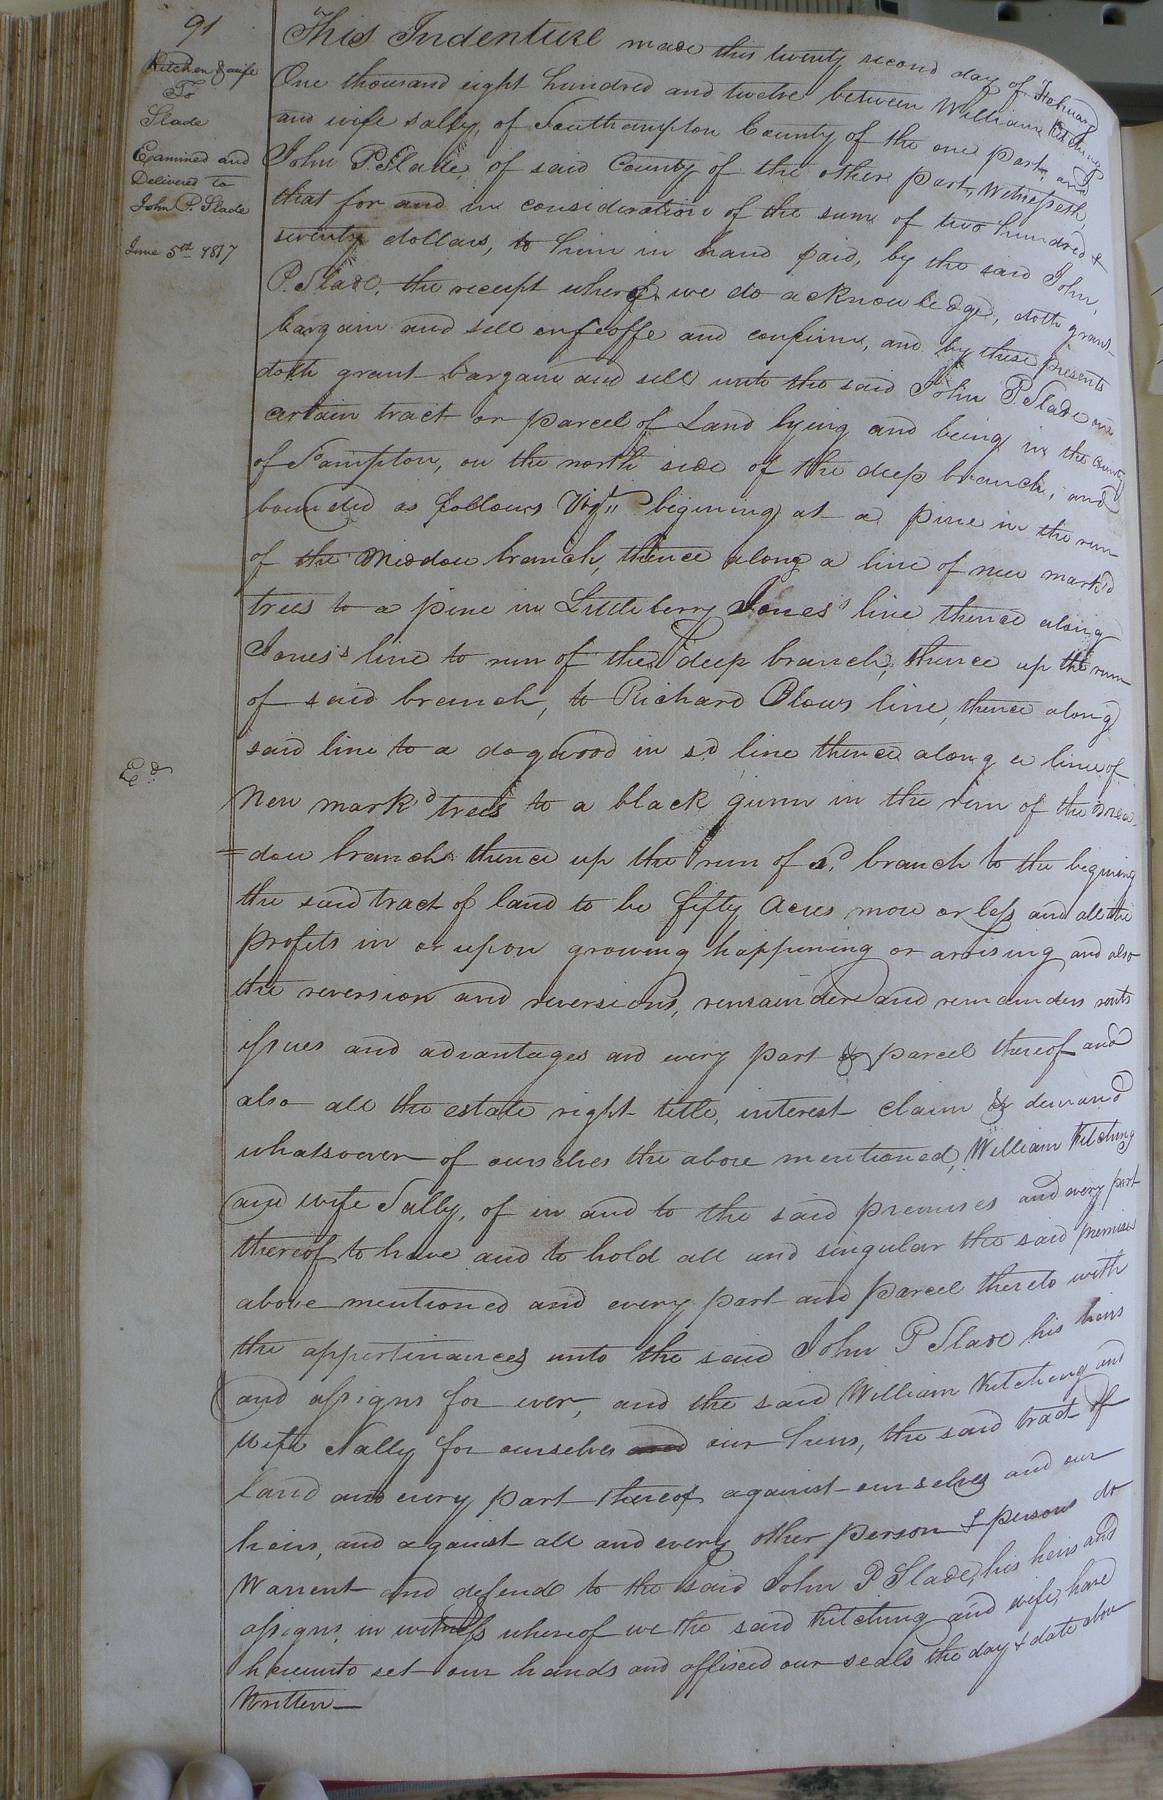 91
Kitchen & wife
To
Slade
Examined and
Delivered to
John P. Slade
June 5th 1817
Ed
This Indenture made this twenty second day of February
One thousand eight hundred and twelve between William Kitching
and wife Sally, of Southampton County of the one part, and
John P. Slade, of said County of the other part, Witnesseth,
that for and in consideration of the sum of two hundred &
seventy dollars, to him in hand paid, by the said John,
P. Slade, the receipt whereof we do acknowledge, doth grant
bargain and sell enfeoffe and confirm, and by these presents
doth grant bargain and sell unto the said John P. Slade one
certain tract or parcel of Land lying and being in the County
of S'ampton, on the north side of the deep branch, and
bounded as follows Vizt begining at a pine in the run
of the Meadow branch, thence along a line of new mark'd
trees to a pine in Littleberry Jones's line thence along
Jones's line to run of the deep branch, thence up the run
of said branch, to Richard Blows line, thence along
said line to a dogwood in sd. line thence along a line of
New mark'd trees to a black gum in the run of the mea-
=dow branch thence up the run of sd. branch to the begining
the said tract of land to be fifty Acres more or less and all the
profits in or upon growing happening or arrising and also
the reversion and reversions, remainder and remainders rents
issues and advantages and every part & parcel thereof and
also all the estate right title, interest claim & demand
whatsoever of ourselves the above mentioned, William Kitching
and wife Sally, of in and to the said premises and every part
thereof to have and to hold all and singular the said premises
above mentioned and every part and parcel thereto with
the appertinances unto the said John P Slade his heirs
and assigns for ever, and the said William Kitching and
wife Sally for ourselves and our heirs, the said tract of
land and every part thereof against ourselves and our
heirs, and against all and every other person & persons do
Warrent and defend to the said John P Slade, his heirs and
assigns, in witness whereof we the said Kitching and wife, have
hereunto set our hands and affixed our seals the day & date above
Written—